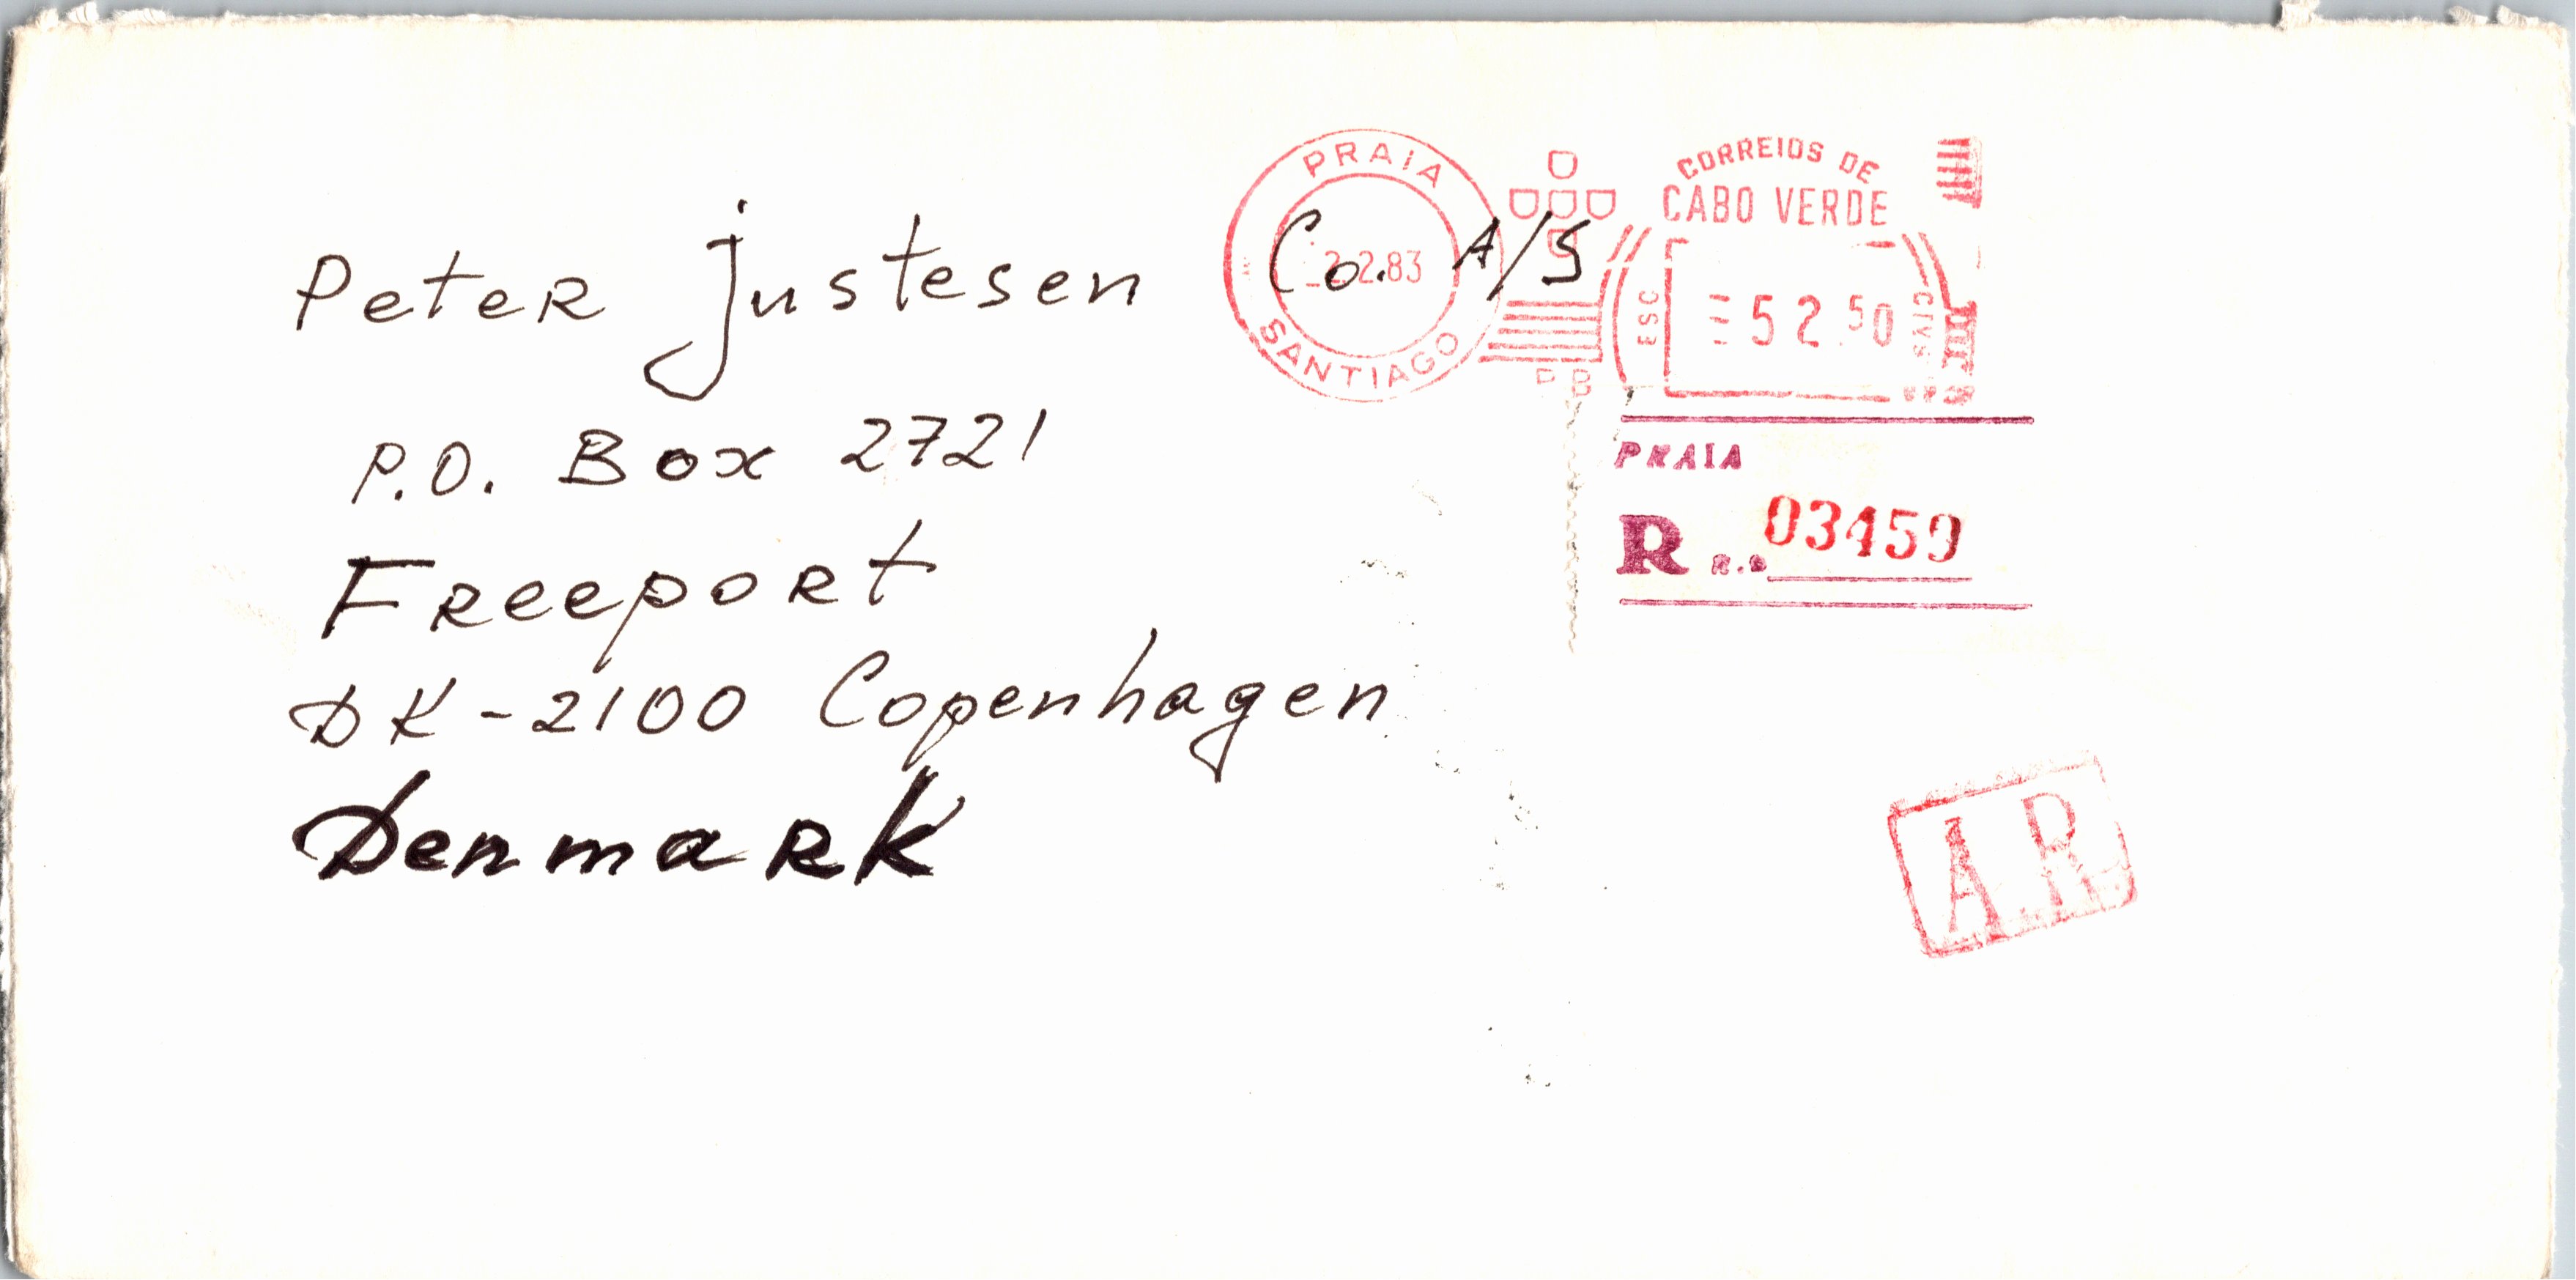 PRAIA
CORREIOS DE
CABO VERDE
Peter Justesen Co. A/S
2.2.83
ESC
52.50
CTVS
SANTIAGO
PRAIA
P.O. Box 2721
R N.º 03459
Freeport
DK-2100 Copenhagen
Denmark
A.R